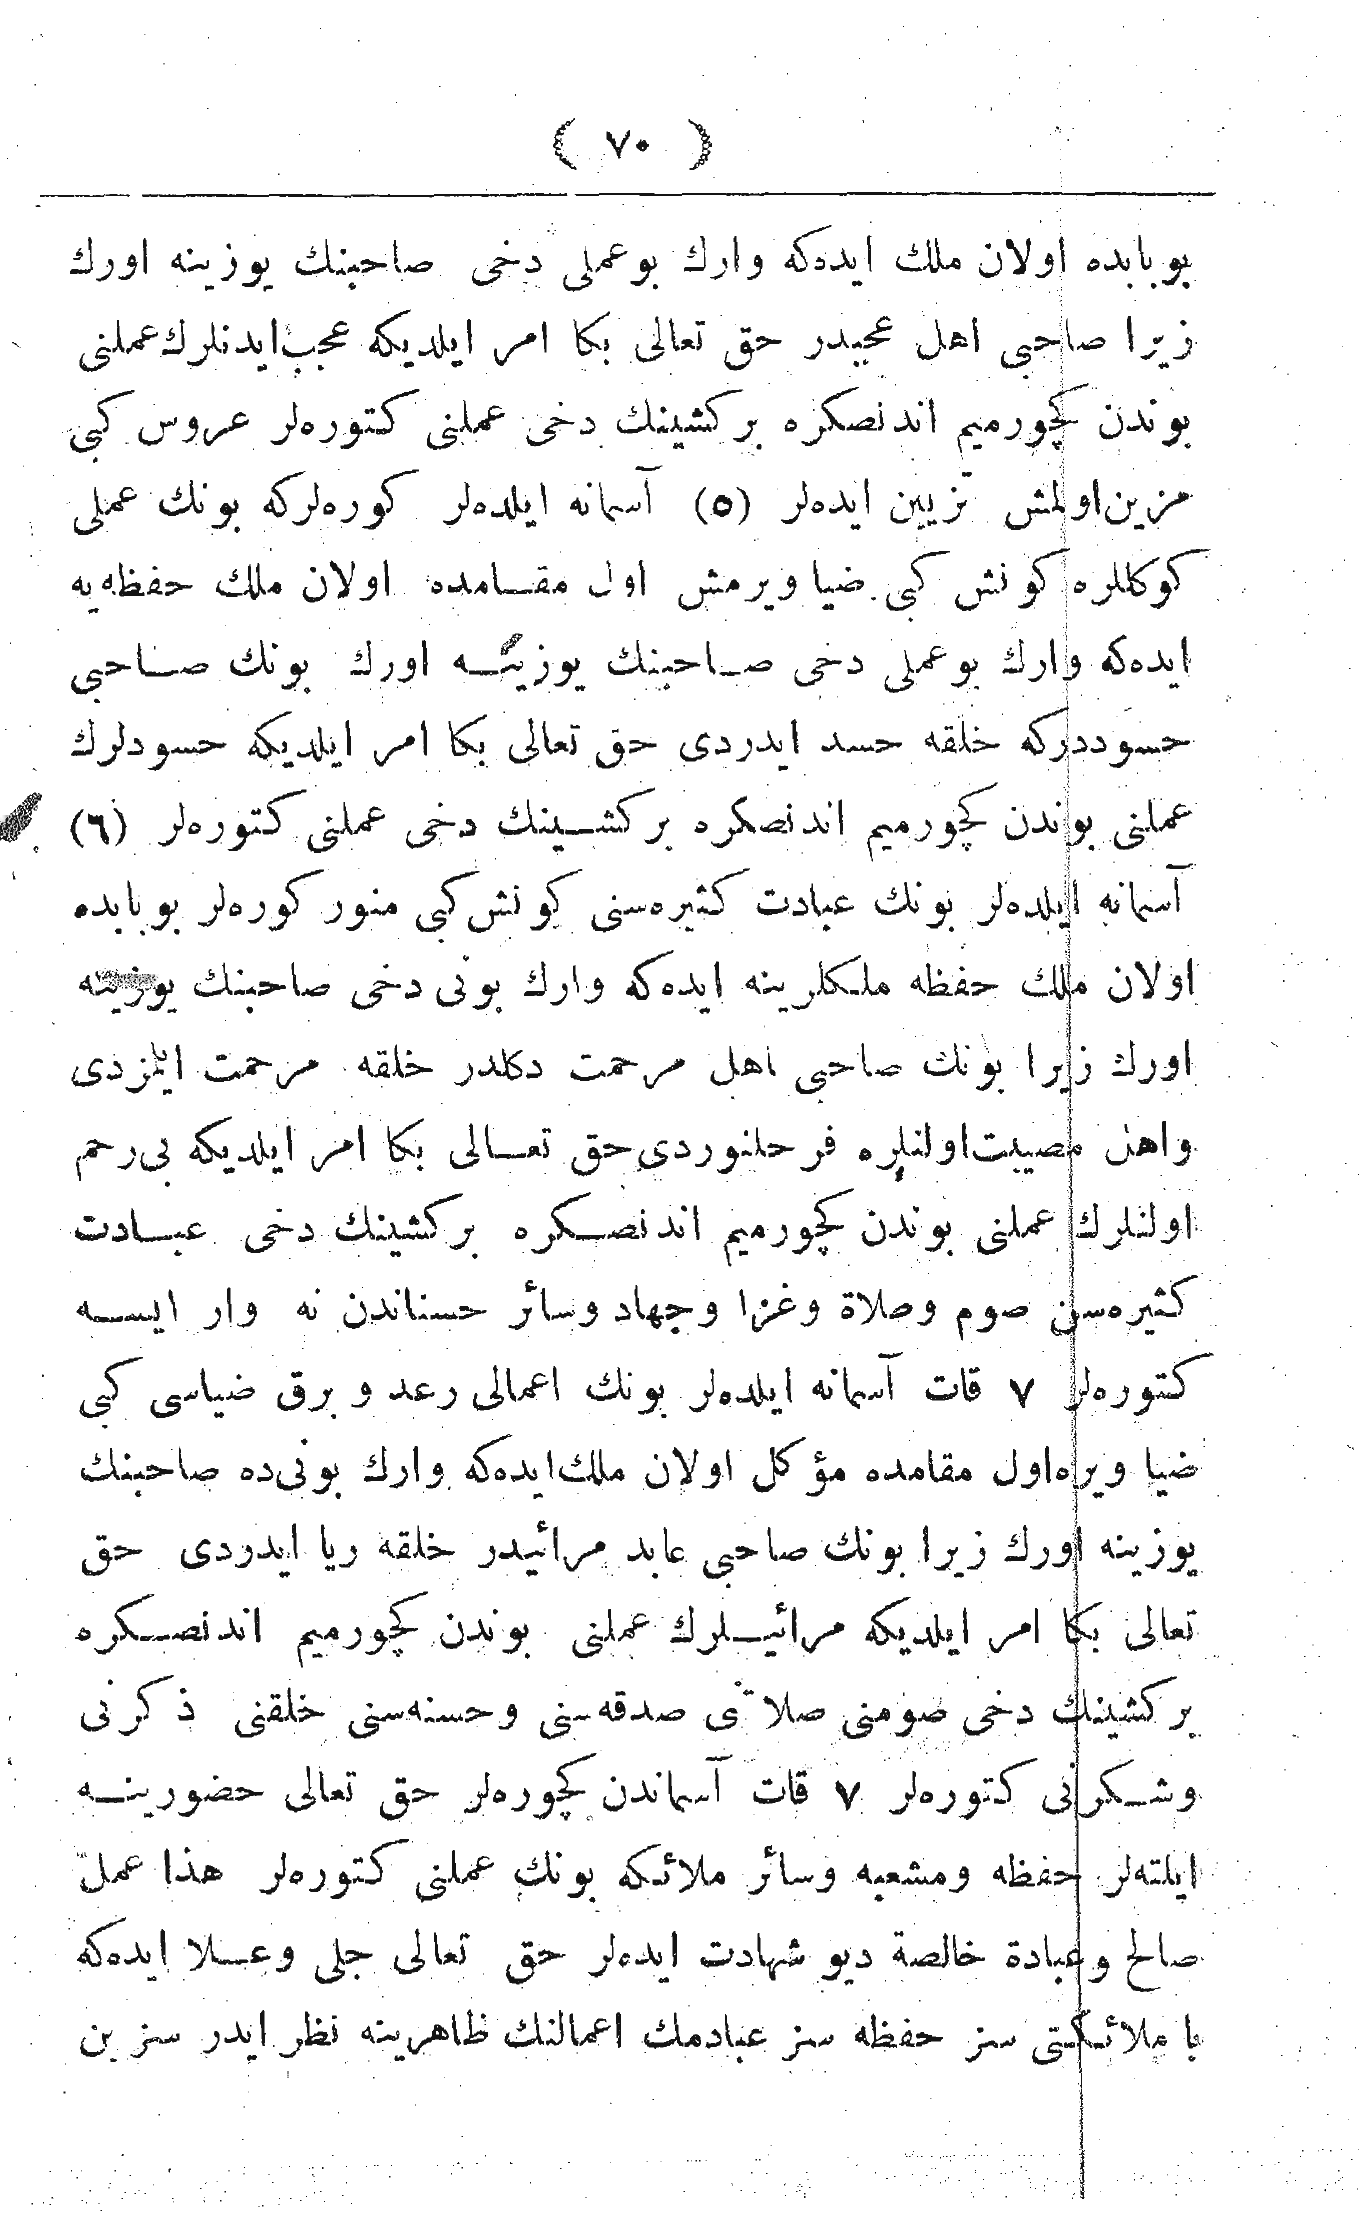 ( ٧٠ )
بوبابده اولان ملك ايده‌كه وارك بوعملى دخى صاحبنك يوزينه اورك
زيرا صاحبى اهل عجبدر حق تعالى بكا امر ايلديكه عجب ايدنلرك عملنى
بوندن كچورميم اندنصكره بركشينك دخى عملنى كتوره‌لر عروس كبى
مزين اولمش تزيين ايده‌لر (٥) آسمانه ايلده‌لر كوره‌لركه بونك عملى
كوكللره كونش كبى ضيا ويرمش اول مقـامده اولان ملك حفظه‌يه
ايده‌كه وارك بوعملى دخى صـاحبنك يوزينـه اورك بونك صـاحبى
حسوددركه خلقه حسد ايدردى حق تعالى بكا امر ايلديكه حسودلرك
عملنى بوندن كچورميم اندنصكره بركشـينك دخى عملنى كتوره‌لر (٦)
آسمانه ايلده‌لر بونك عبادت كثيره‌سنى كونش كبى منور كوره‌لر بوبابده
اولان ملك حفظه ملـكلرينه ايده‌كه وارك بونى دخى صاحبنك يوزينه
اورك زيرا بونك صاحبى اهل مرحمت دكلدر خلقه مرحمت ايتمزدى
واهل مصيبت اولنلره فرحلنوردى حق تعـالى بكا امر ايلديكه بى‌رحم
اولنلرك عملنى بوندن كچورميم اندنصـكره بركشينك دخى عبـادت
كثيره‌سن صوم وصلاة وغزا وجهاد وسائر حسناندن نه وار ايسـه
كتوره‌لر ٧ قات آسمانه ايلده‌لر بونك اعمالى رعد و برق ضياسى كبى
ضيا ويره اول مقامده مؤكل اولان ملك ايده‌كه وارك بونى‌ده صاحبنك
يوزينه اورك زيرا بونك صاحبى عابد مرائيدر خلقه ريا ايدردى حق
تعالى بكا امر ايلديكه مرائيـلرك عملنى بوندن كچورميم اندنصـكره
بركشينك دخى صومنى صلاتى صدقه‌سنى وحسنه‌سنى خلقنى ذكرنى
وشـكرنى كتوره‌لر ٧ قات آسماندن كچوره‌لر حق تعالى حضورينـه
ايلته‌لر حفظه ومشعبه وسائر ملائكه بونك عملنى كتوره‌لر هذا عملٌ
صالح وعبادة خالصة ديو شهادت ايده‌لر حق تعالى جلى وعـلا ايده‌كه
يا ملائـكتى سز حفظه سز عبادمك اعمالنك ظاهرينه نظر ايدر سز بن